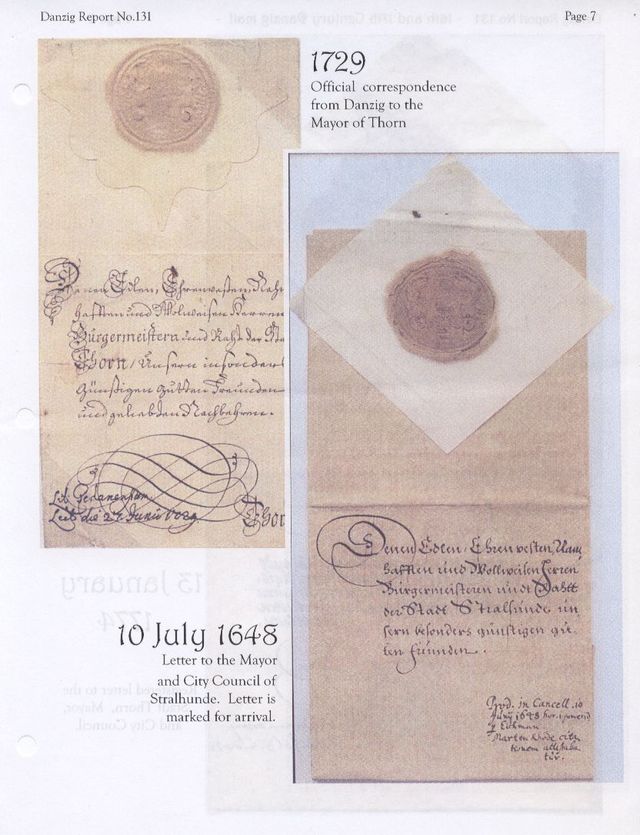 Danzig Report No.131
Page 7
1729
Official correspondence
from Danzig to the
Mayor of Thorn
Denen Edlen, Ehrenvesten, Nahm
hafften und Wolweisen Herren
Bürgermeistern und Raht der
Thorn, Unsern insonders
günstigen gutten Freunden
und geliebten Nachbahren.
Thor
10 July 1648
Letter to the Mayor
and City Council of
Stralhunde. Letter is
marked for arrival.
Denen Edlen, Ehrenvesten, Nam
hafften und Wollweisen Herren
Bürgermeisteren undt Rahtt
der Stadt Stralsunde un
sern besonders günstigen gu
ten freunden.
Prod. in Cancell. 10
1648